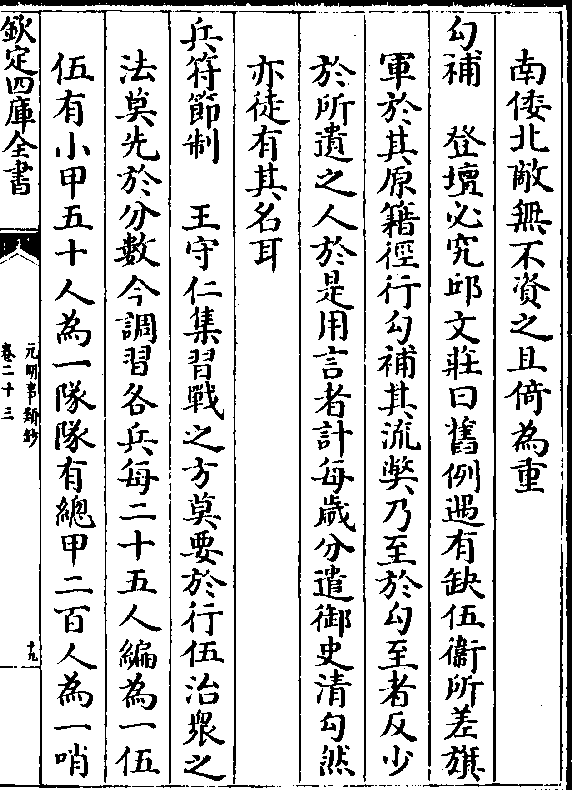 南倭北敵無不資之且倚為重
勾補　登壇必究邱文莊曰舊例遇有缺伍衞所差旗
軍於其原籍徑行勾補其流獘乃至於勾至者反少
於所遺之人於是用言者計每歲分遣御史清勾然
亦徒有其名耳
兵符節制　王守仁集習戰之方莫要於行伍治衆之
法莫先於分數今調習各兵每二十五人編為一伍
伍有小甲五十人為一隊隊有總甲二百人為一哨
欽定四庫全書
元明事類鈔
卷二十三
十九